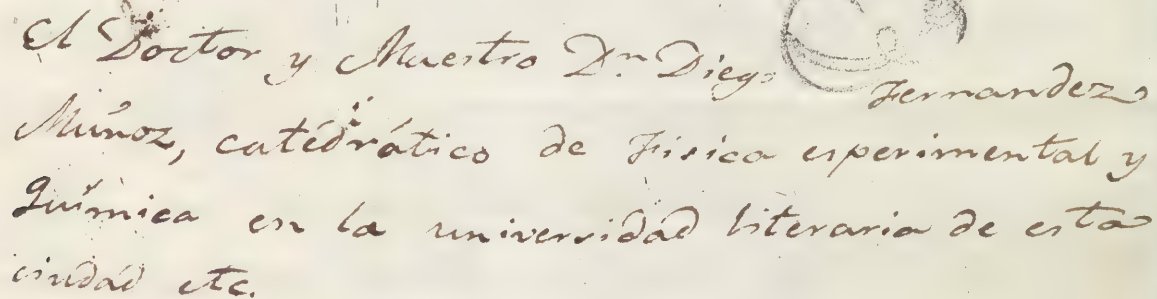 El Doctor y Maestro Dn. Diego Fernandez
Múñoz, catédrático de Fisica esperimental y
Química en la universidad literaria de esta
ciudad etc.